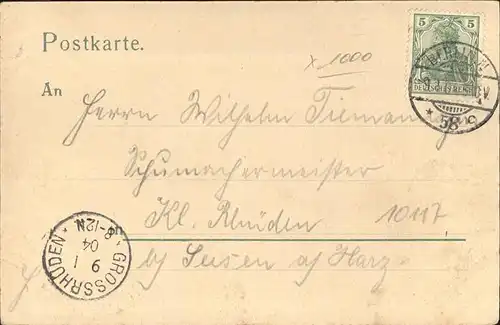 Postkarte.
x 1000
An
5
DEUTSCHES REICH
BERLIN
* 58 *
Herrn Wilhelm Tiemann
Schumachermeister
Kl. Rhüden
10117
by Seesen a/ Harz
GROSSRHÜDEN
9 1
04
8-12N